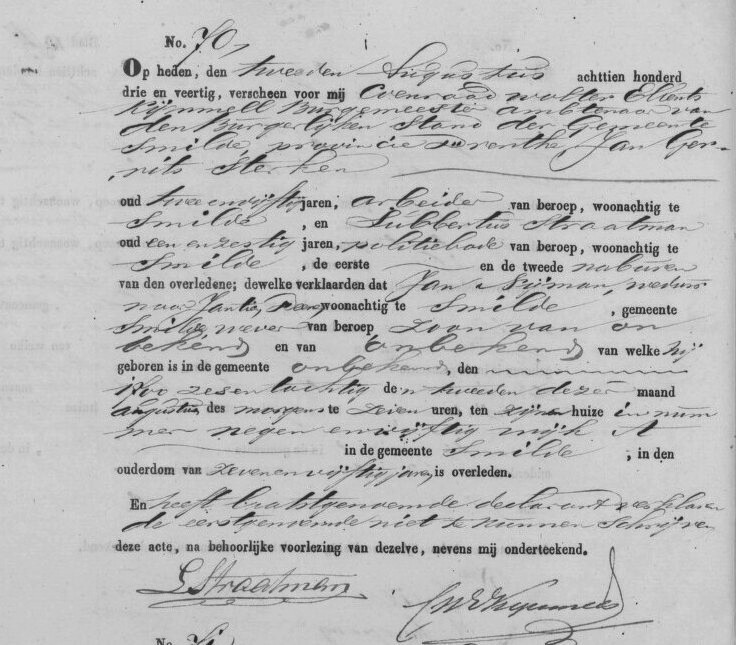 No. 70,
Op heden, den tweeden Augustus achttien honderd
drie en veertig, verscheen voor mij Coenraad Wolter Ellents
Kijmmell Burgemeester ambtenaar van
den Burgerlijken Stand der Gemeente
Smilde, provincie Drenthe, Jan Ger-
rits Sterken
oud twee en vijftig jaren, arbeider van beroep, woonachtig te
Smilde, en Lubbertus Straatman
oud een en zestig jaren, politiebode van beroep, woonachtig te
Smilde, de eerste en de tweede naburen
van den overledene; dewelke verklaarden dat Jan Nijman, weduw-
naar Jantie woonachtig te Smilde, gemeente
Smilde wever van beroep zoon van on
bekend en van onbekend van welke hij
geboren is in de gemeente onbekend, den
1700 zes en tachtig den tweeden dezer maand
augustus des morgens te zeven uren, ten zijnen huize in num
mer negen en vijftig wijk A
in de gemeente Smilde, in den
ouderdom van zeven en vijftig jaren is overleden.
En heeft laatstgenoemde declarant verklaren
de eerstgenoemde niet te kunnen schrijven
deze acte, na behoorlijke voorlezing van dezelve, nevens mij onderteekend.
L Straatman
CWEKijmmell
No. 71